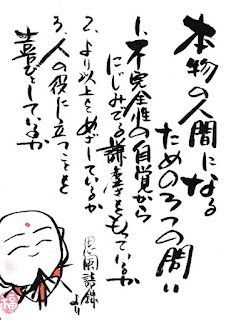 本物の人間になる
ための3つの問い
1、不完全性の自覚から
にじみでる謙虚さをもっているか
2、より以上をめざしているか
3、人の役に立つことを
喜びとしているか
より
福